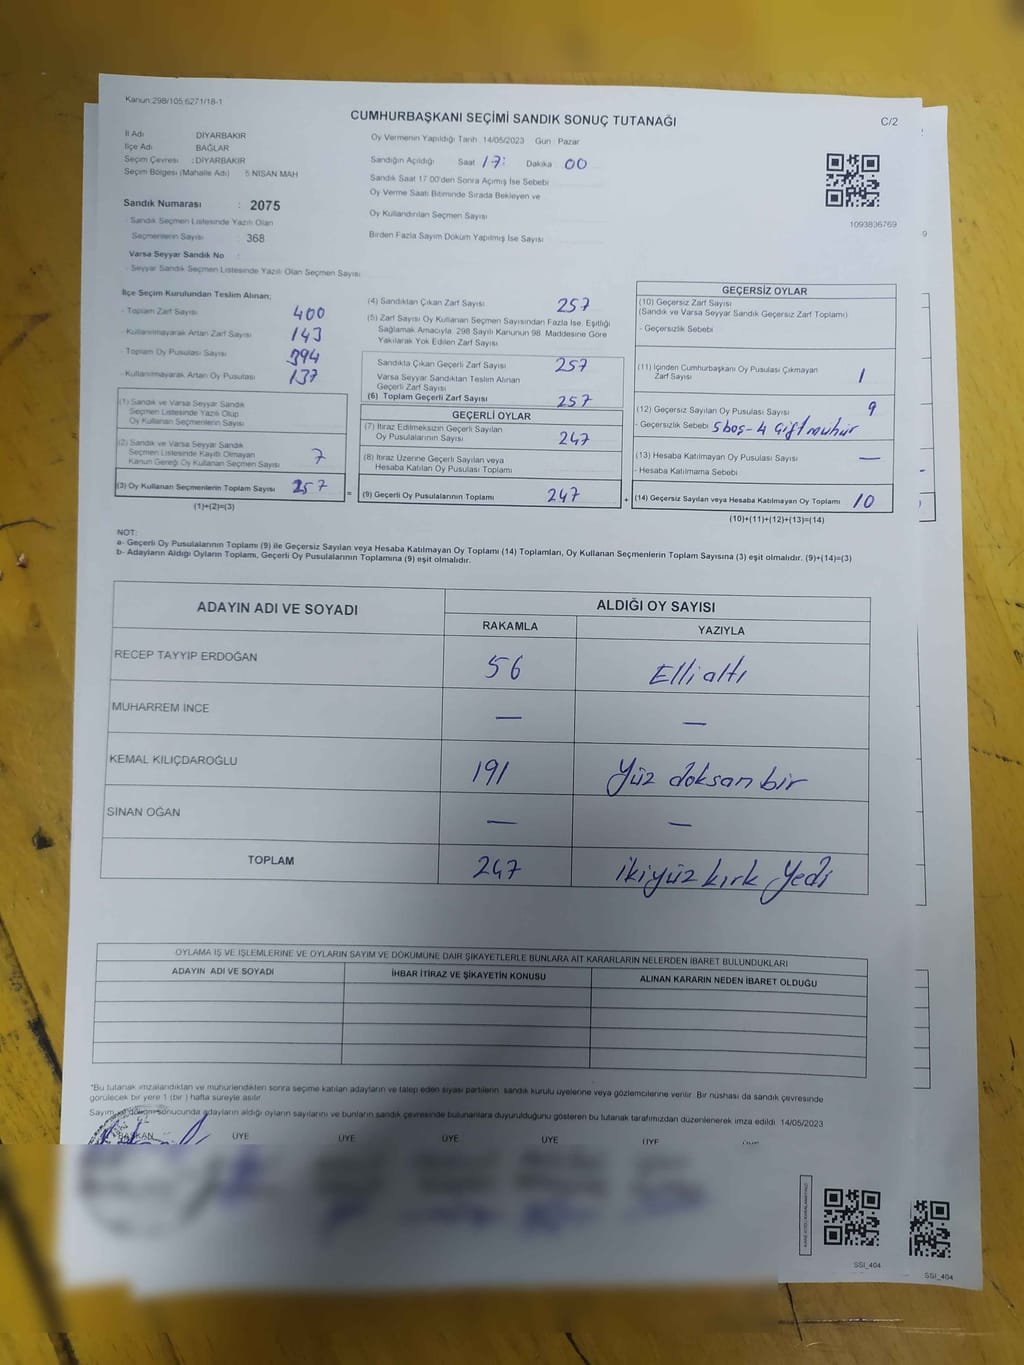 Kanun:298/105,6271/18-1
CUMHURBAŞKANI SEÇİMİ SANDIK SONUÇ TUTANAĞI
C/2
İl Adı DİYARBAKIR
İlçe Adı BAĞLAR
Seçim Çevresi : DİYARBAKIR
Seçim Bölgesi (Mahalle Adı) 5 NİSAN MAH
Sandık Numarası : 2075
- Sandık Seçmen Listesinde Yazılı Olan
Seçmenlerin Sayısı : 368
Varsa Seyyar Sandık No :
- Seyyar Sandık Seçmen Listesinde Yazılı Olan Seçmen Sayısı
Oy Vermenin Yapıldığı Tarih 14/05/2023 Gün Pazar
Sandığın Açıldığı Saat 17: Dakika 00
Sandık Saat 17.00'den Sonra Açımış İse Sebebi
Oy Verme Saati Bitiminde Sırada Bekleyen ve
Oy Kullandırılan Seçmen Sayısı
Birden Fazla Sayım Döküm Yapılmış İse Sayısı
1093836769
İlçe Seçim Kurulundan Teslim Alınan;
- Toplam Zarf Sayısı 400
- Kullanılmayarak Artan Zarf Sayısı 143
- Toplam Oy Pusulası Sayısı 394
- Kullanılmayarak Artan Oy Pusulası 137
(1) Sandık ve Varsa Seyyar Sandık
Seçmen Listesinde Yazılı Olup
Oy Kullanan Seçmen Sayısı
(2) Sandık ve Varsa Seyyar Sandık
Seçmen Listesinde Kayıtlı Olmayan
Kanun Gereği Oy Kullanan Seçmen Sayısı 7
(3) Oy Kullanan Seçmenlerin Toplam Sayısı 257
(1)+(2)=(3)
=
(4) Sandıktan Çıkan Zarf Sayısı 257
(5) Zarf Sayısı Oy Kullanan Seçmen Sayısından Fazla İse, Eşitliği
Sağlamak Amacıyla 298 Sayılı Kanunun 98. Maddesine Göre
Yakılarak Yok Edilen Zarf Sayısı
Sandıkta Çıkan Geçerli Zarf Sayısı 257
Varsa Seyyar Sandıktan Teslim Alınan
Geçerli Zarf Sayısı
(6) Toplam Geçerli Zarf Sayısı 257
GEÇERLİ OYLAR
(7) İtiraz Edilmeksizin Geçerli Sayılan
Oy Pusulalarının Sayısı 247
(8) İtiraz Üzerine Geçerli Sayılan veya
Hesaba Katılan Oy Pusulası Toplamı
(9) Geçerli Oy Pusulalarının Toplamı 247
+
GEÇERSİZ OYLAR
(10) Geçersiz Zarf Sayısı
(Sandık ve Varsa Seyyar Sandık Geçersiz Zarf Toplamı)
- Geçersizlik Sebebi
(11) İçinden Cumhurbaşkanı Oy Pusulası Çıkmayan
Zarf Sayısı 1
(12) Geçersiz Sayılan Oy Pusulası Sayısı 9
- Geçersizlik Sebebi 5boş-4 Çift mühür
(13) Hesaba Katılmayan Oy Pusulası Sayısı —
- Hesaba Katılmama Sebebi
(14) Geçersiz Sayılan veya Hesaba Katılmayan Oy Toplamı 10
(10)+(11)+(12)+(13)=(14)
NOT:
a- Geçerli Oy Pusulalarının Toplamı (9) ile Geçersiz Sayılan veya Hesaba Katılmayan Oy Toplamı (14) Toplamları, Oy Kullanan Seçmenlerin Toplam Sayısına (3) eşit olmalıdır. (9)+(14)=(3)
b- Adayların Aldığı Oyların Toplamı, Geçerli Oy Pusulalarının Toplamına (9) eşit olmalıdır.
ADAYIN ADI VE SOYADI
ALDIĞI OY SAYISI
RAKAMLA YAZIYLA
RECEP TAYYİP ERDOĞAN 56 Elli altı
MUHARREM İNCE — —
KEMAL KILIÇDAROĞLU 191 Yüz doksan bir
SİNAN OĞAN — —
TOPLAM 247 ikiyüz kırk Yedi
OYLAMA İŞ VE İŞLEMLERİNE VE OYLARIN SAYIM VE DÖKÜMÜNE DAİR ŞİKAYETLERLE BUNLARA AİT KARARLARIN NELERDEN İBARET BULUNDUKLARI
ADAYIN ADI VE SOYADI İHBAR İTİRAZ VE ŞİKAYETİN KONUSU ALINAN KARARIN NEDEN İBARET OLDUĞU
*Bu tutanak imzalandıktan ve mühürlendikten sonra seçime katılan adayların ve talep eden siyasi partilerin sandık kurulu üyelerine veya gözlemcilerine verilir. Bir nüshası da sandık çevresinde
görülecek bir yere 1 (bir ) hafta süreyle asılır
Sayım ve döküm sonucunda adayların aldığı oyların sayılarını ve bunların sandık çevresinde bulunanlara duyurulduğunu gösteren bu tutanak tarafımızdan düzenlenerek imza edildi. 14/05/2023
BAŞKAN ÜYE ÜYE ÜYE ÜYE ÜYE
SSİ_404
SSİ_404